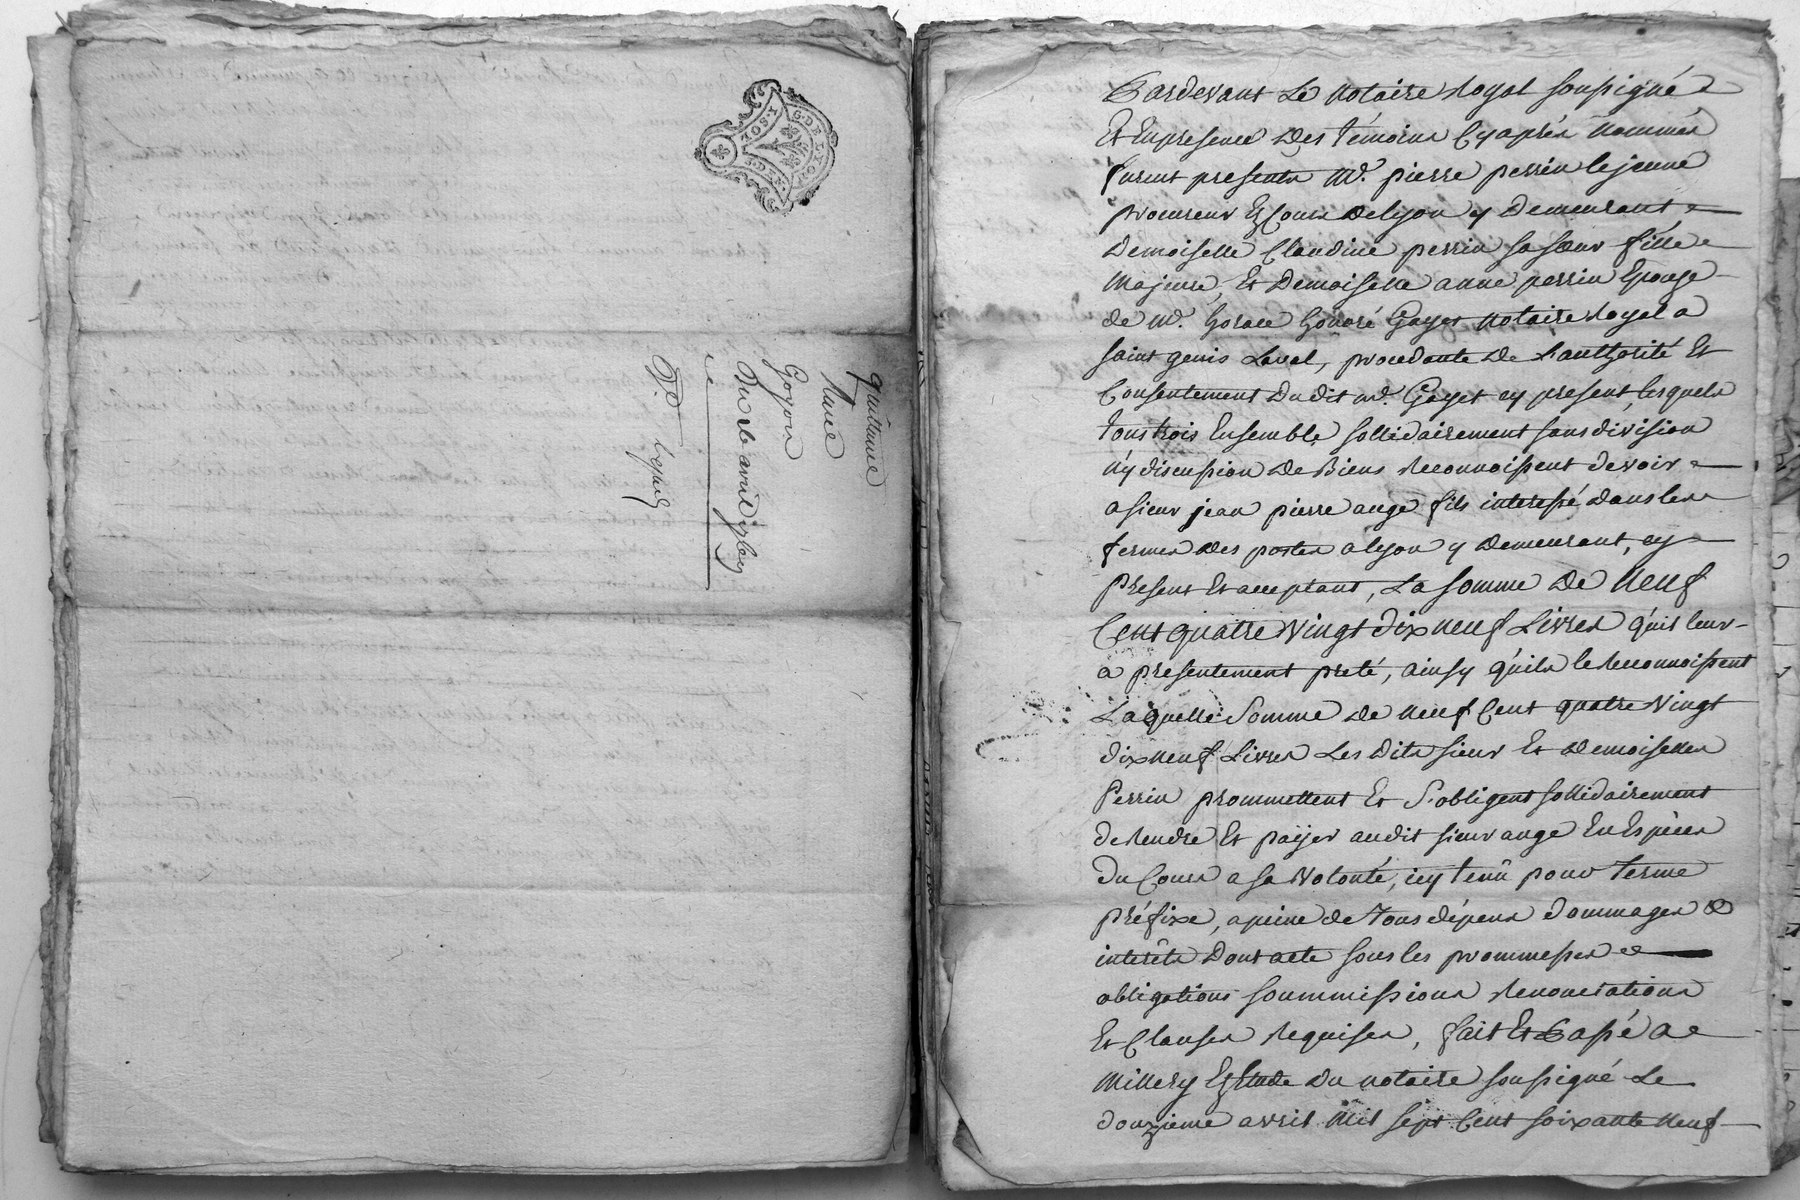 G. DE LYON
quittance
Goyon
Du 12 avril 1769
Pardevant Le Notaire Royal soussigné
Et Enpresence Des témoins Cyaprés Nommés
furent presents Mr. pierre perrin le jeune
procureur Ez Cours de lyon y Demeurant
Demoiselle Claudine perrin sa sœur fille
Majeure, Et Demoiselle anne perrin Epouse
de Mr. horace honoré Gayet Notaire Royal a
saint genis Laval, procedante De L'authorité Et
Consentement Du dit mr. Gayet cy present, lesquels
tous trois Ensemble sollidairement sans division
n'y discussion De Biens Reconnoissent devoir
a sieur jean pierre auge fils interessé dans les
fermes des postes a lyon y Demeurant, cy
Present Et acceptant, La somme De Neuf
Cent quatre Vingt Dix neuf Livres qu'il leur
a presentement preté, ainsy qu'ils le Reconnoissent
Laquelle Somme de neuf Cent quatre Vingt
dix neuf Livres Les Dits sieur Et Demoiselles
Perrin prommettent Et S'obligent sollidairement
de Rendre Et païjer audit sieur auge En Espèces
Du Cours a sa Volonté, icy tenû pour terme
Préfixe, a peine de tous dépens dommages &
interêts Dont acte sous les prommesses
obligations soummissions Renonciations
Et Clauses Requises, fait Et Passé a
Millery Etude Du notaire soussigné Le
douzieme avril Mil sept Cent soixante Neuf